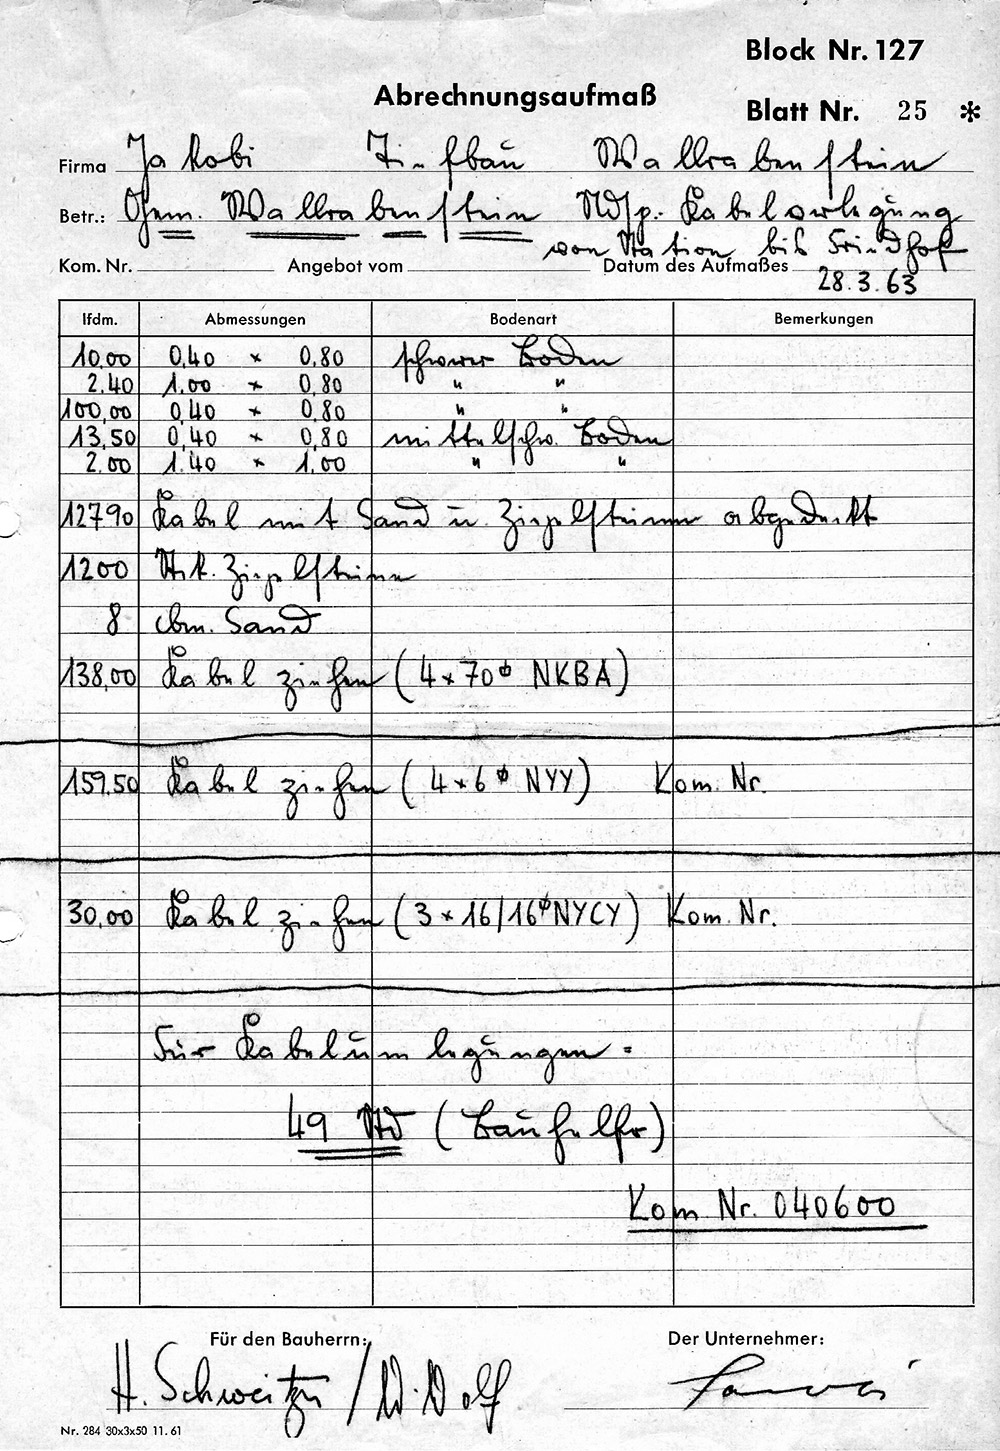 Block Nr. 127
Abrechnungsaufmaß
Blatt Nr. 25 *
Firma Jakobi Tiefbau Wallrabenstein
Betr.: Gem. Wallrabenstein Ndsp. Kabelverlegung
von Station bis Friedhof
Kom. Nr. Angebot vom Datum des Aufmaßes
28.3.63
lfdm. Abmessungen Bodenart Bemerkungen
10,00 0,40 × 0,80 schwerer Boden
2.40 1.00 × 0,80 " "
100,00 0,40 × 0,80 " "
13,50 0,40 × 0,80 mittelschw. Boden
2.00 1.40 × 1.00 " "
12790 Kabel mit Sand u. Ziegelsteinen abgedeckt
1200 Stk. Ziegelsteine
8 cbm. Sand
138,00 Kabel ziehen (4 × 70 ⌀ NKBA)
159.50 Kabel ziehen (4 × 6 ⌀ NYY) Kom. Nr.
30,00 Kabel ziehen (3 × 16/16 ⌀ NYCY) Kom. Nr.
Für Kabelumlegungen =
49 Std (Bauhelfer)
Kom Nr. 040600
Für den Bauherrn: Der Unternehmer:
H. Schweitzer / W. Dolf
Nr. 284 30x3x50 11.61